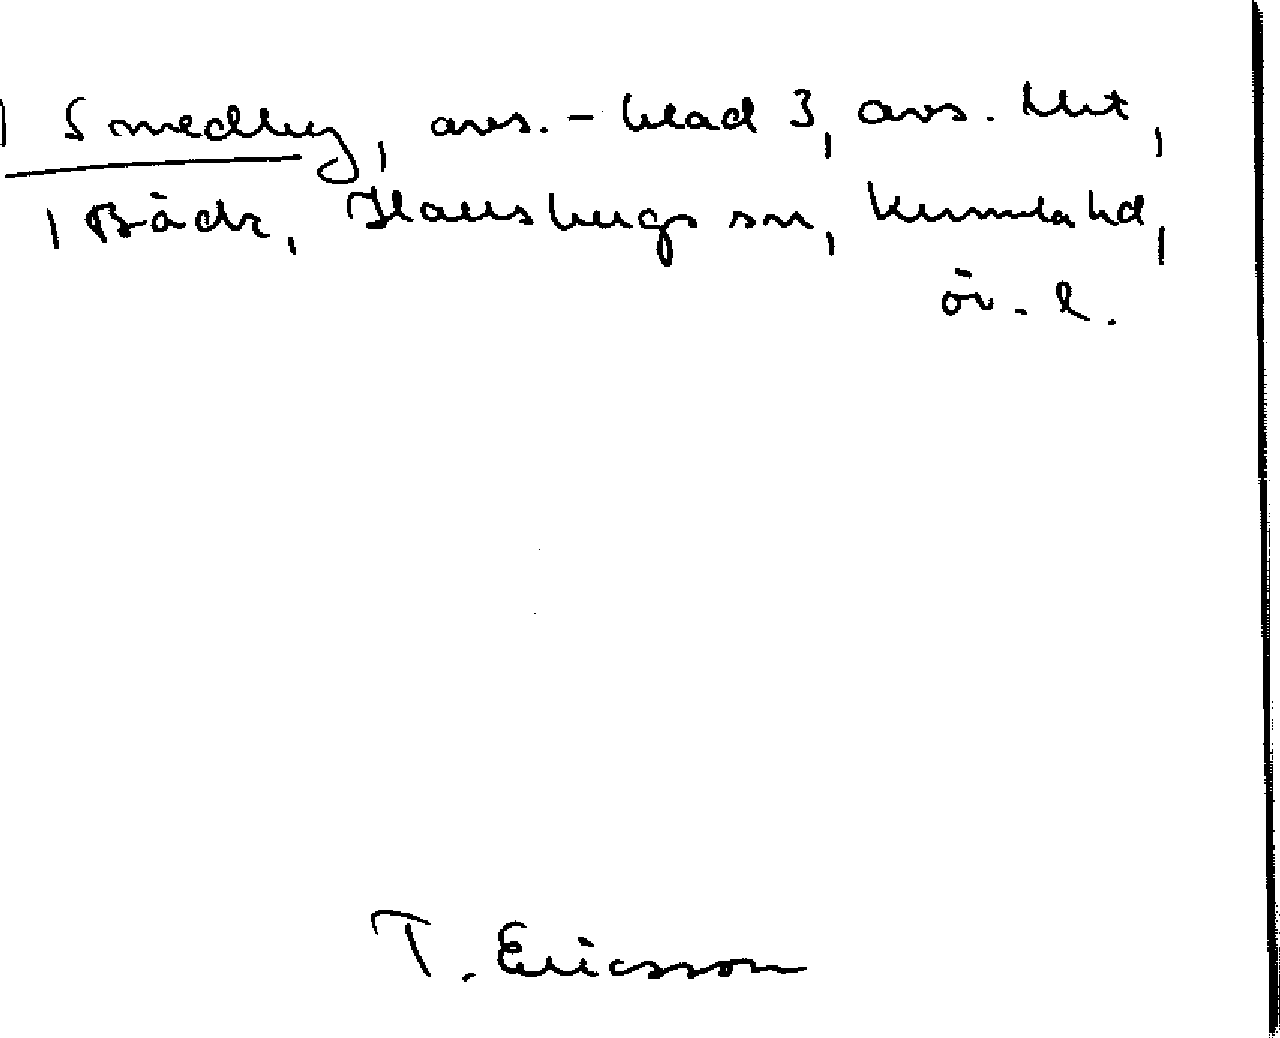 | Smedberg, avs. - blad 3, avs. utit,
| Bäck, Hassbergs sn, Kumla hd,
ör. l.
T. Ericsson